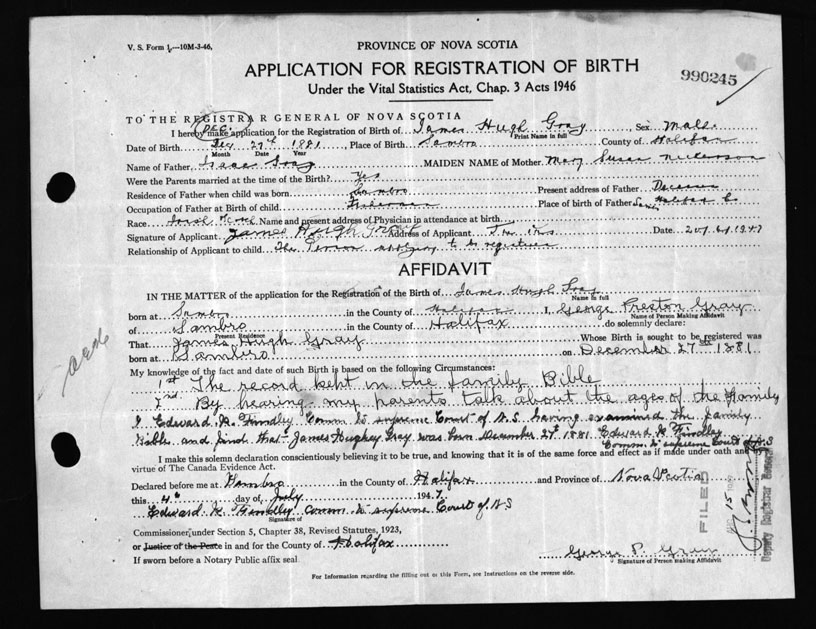 V. S. Form 1.—10M-3-46.
PROVINCE OF NOVA SCOTIA
APPLICATION FOR REGISTRATION OF BIRTH
Under the Vital Statistics Act, Chap. 3 Acts 1946
990245
TO THE REGISTRAR GENERAL OF NOVA SCOTIA
I hereby make application for the Registration of Birth of James Hugh Gray, Sex Male
DEC.
Print Name in full
Date of Birth 27th 1881, Place of Birth Sambro County of Halifax
Month Day Year
Name of Father Isaac Gray MAIDEN NAME of Mother Mary Susan Nickerson
Were the Parents married at the time of the Birth? Yes
Residence of Father when child was born Sambro Present address of Father Deceased
Occupation of Father at Birth of child Fisherman Place of birth of Father Halifax Co
Race Name and present address of Physician in attendance at birth
Signature of Applicant James Hugh Gray Address of Applicant Date 1947
Relationship of Applicant to child The Person applying to be registered
AFFIDAVIT
IN THE MATTER of the application for the Registration of the Birth of James Hugh Gray
Name in full
born at Sambro in the County of Halifax I, George Preston Gray
Name of Person Making Affidavit
of Sambro in the County of Halifax do solemnly declare:
Present Residence
That James Hugh Gray Whose Birth is sought to be registered was
born at Sambro on December 27th 1881
My knowledge of the fact and date of such Birth is based on the following Circumstances:
1st The record kept in the family Bible
2nd By hearing my parents talk about the ages of the Family
I Edward K. Findley Comm to supreme Court of N.S. having examined the family
Bible and find that James Hughey Gray was born December 27th 1881 Edward K Findley
Comm to supreme Court of N.S
I make this solemn declaration conscientiously believing it to be true, and knowing that it is of the same force and effect as if made under oath and by
virtue of The Canada Evidence Act.
Declared before me at Sambro in the County of Halifax and Province of Nova Scotia
this 4th day of July 1947
Edward K. Findley Comm to supreme Court of N.S
Signature of
Commissioner under Section 5, Chapter 38, Revised Statutes, 1923,
or Justice of the Peace in and for the County of Halifax
If sworn before a Notary Public affix seal
George P. Gray
Signature of Person making Affidavit
For Information regarding the filling out of this Form, see Instructions on the reverse side.
FILED
15
Deputy Registrar General